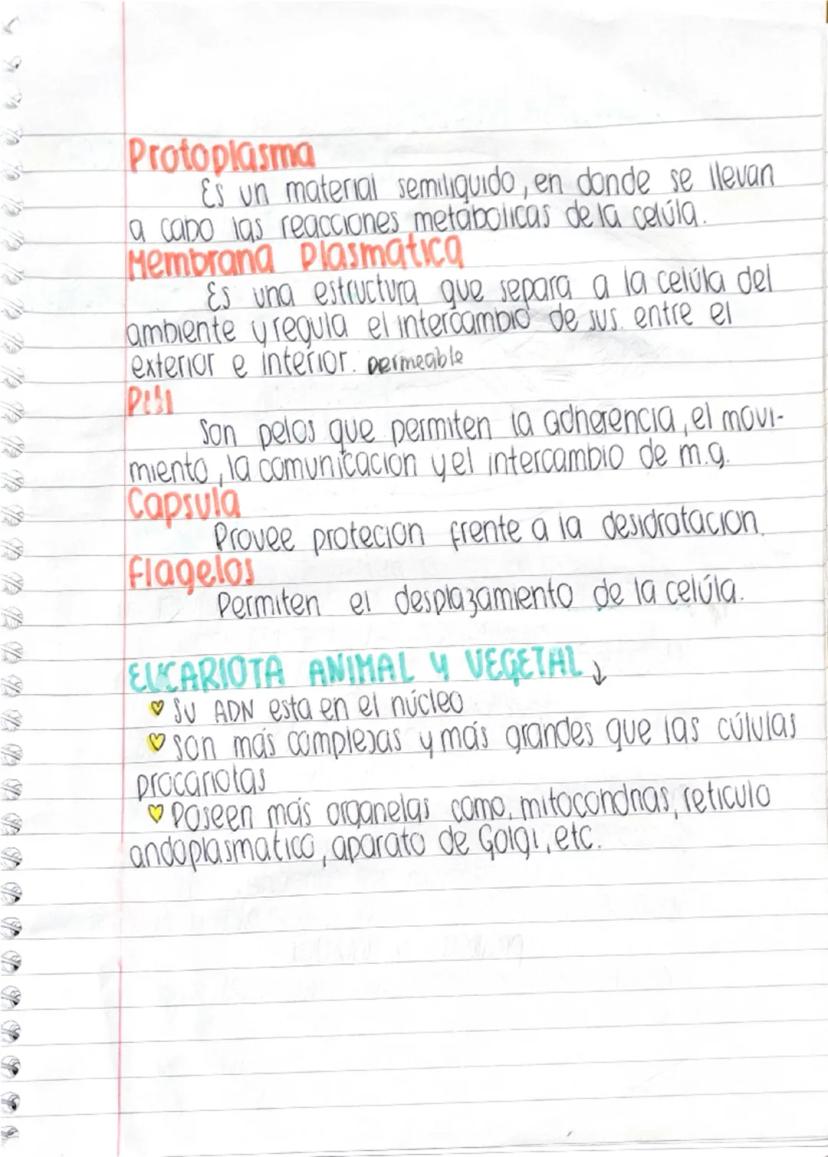 Protoplasma
Es un material semiliquido, en donde se llevan
a cabo las reacciones metabolicas de la celúla.
Membrana Plasmática
Es una estructura que separa a la celúla del
ambiente y regula el intercambio de sus. entre el
exterior e interior. permeable
Pili
Son pelos que permiten la adherencia, el movi-
miento, la comunicacion y el intercambio de m.g.
Capsula
Provee protecion frente a la desidratacion.
Flagelos
Permiten el desplazamiento de la celúla.
EUCARIOTA ANIMAL Y VEGETAL ↓
♡ Su ADN esta en el núcleo
♡ son más complejas y más grandes que las cúlulas
procariotas
♡ Poseen más organelas como, mitocondrias, reticulo
andoplasmatico, aparato de Golgi, etc.